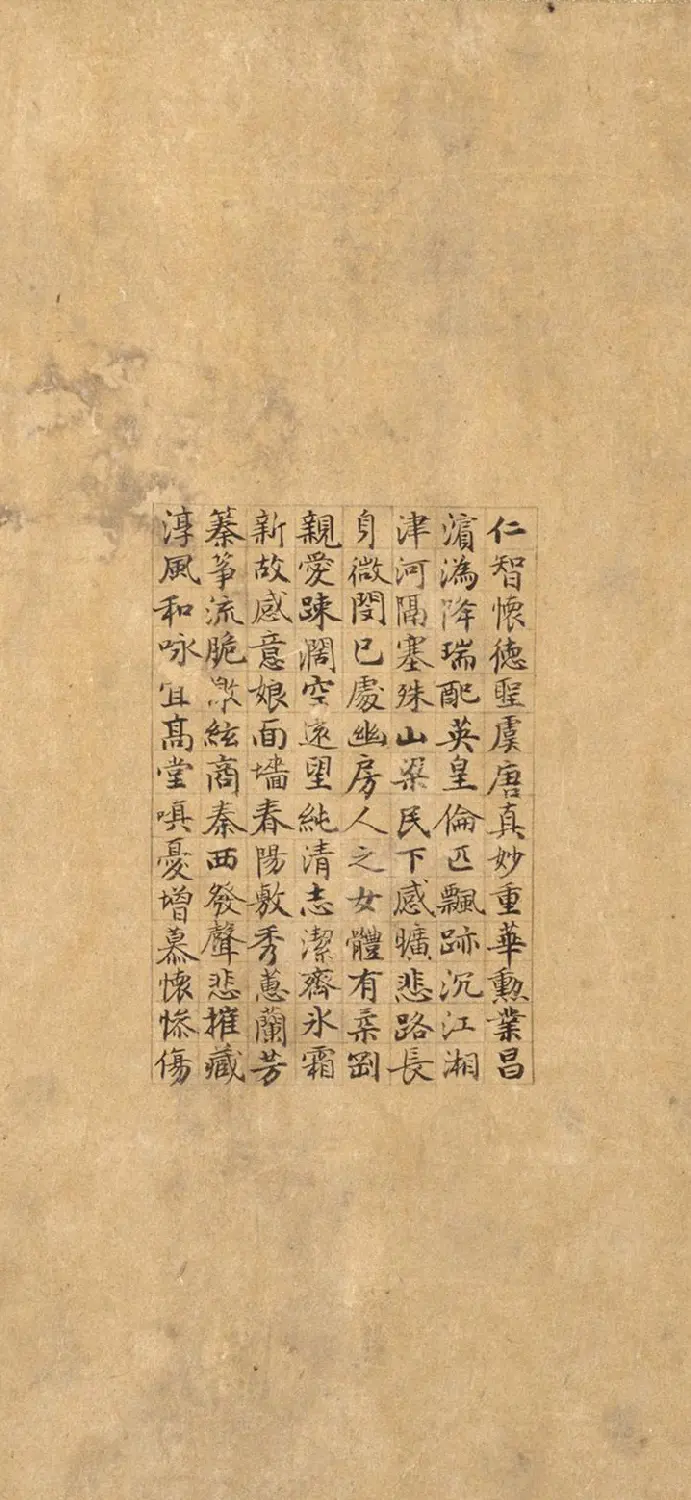 仁智懷徳聖虞唐真妙重華勲業昌
濵溈降瑞配英皇倫匹飄跡沉江湘
津河隔塞殊山梁民下感曠悲路長
身微閔已處幽房人之女體有柔剛
親愛踈闊空遠望純清志潔齊氷霜
新故感意娘面墻春陽敷秀蕙蘭芳
纂箏流脆激絃商秦西發聲悲摧藏
淳風和咏宜髙堂嗔憂增慕懷慘傷